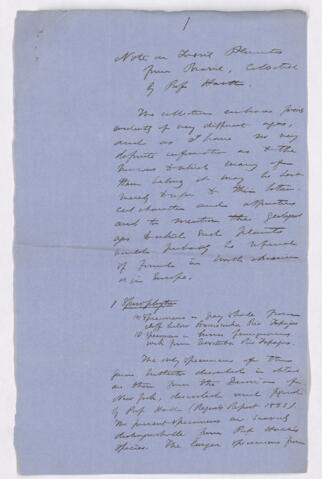 1
Note on Fossil Plants
from Brazil, collected
by Prof Hartt.
The collections embrace
of very different ages,
and as I have no very
definite information as to the
to which many of
them belong it may be best
merely to refer to their
characters and affinities
and to mention the geological
ages to which such plants
would probably be referred
if found in North America
or in Europe.
1 Spirophyton
(a) Specimens in gray shale from
cliff below Rio Tapajos
(b) Specimen in
rock from Rio Tapajos.
The only specimens of this
genus hitherto described in
are those from the Devonian of
New York, described and figured
by Prof Hall (Regents Report 1863)
The present specimens are scarcely
distinguishable from Prof Hall's
species. The larger specimens from